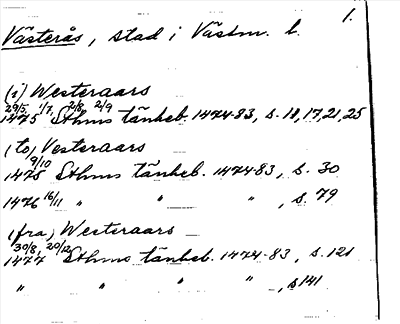 1.
Västerås, stad i Västm. l.
(i) Westeraars
29/5, 1/7, 2/8, 2/9
1475 Sthms tänkeb. 1474-83, s. 18, 17, 21, 25
(to) Vesteraars
9/10
1475 Sthms tänkeb. 1474-83, s. 30
1476 16/11 " " " , s. 79
(fra) Westeraars
30/8, 20/12
1477 Sthms tänkeb. 1474-83, s. 121
" " " " , s 141